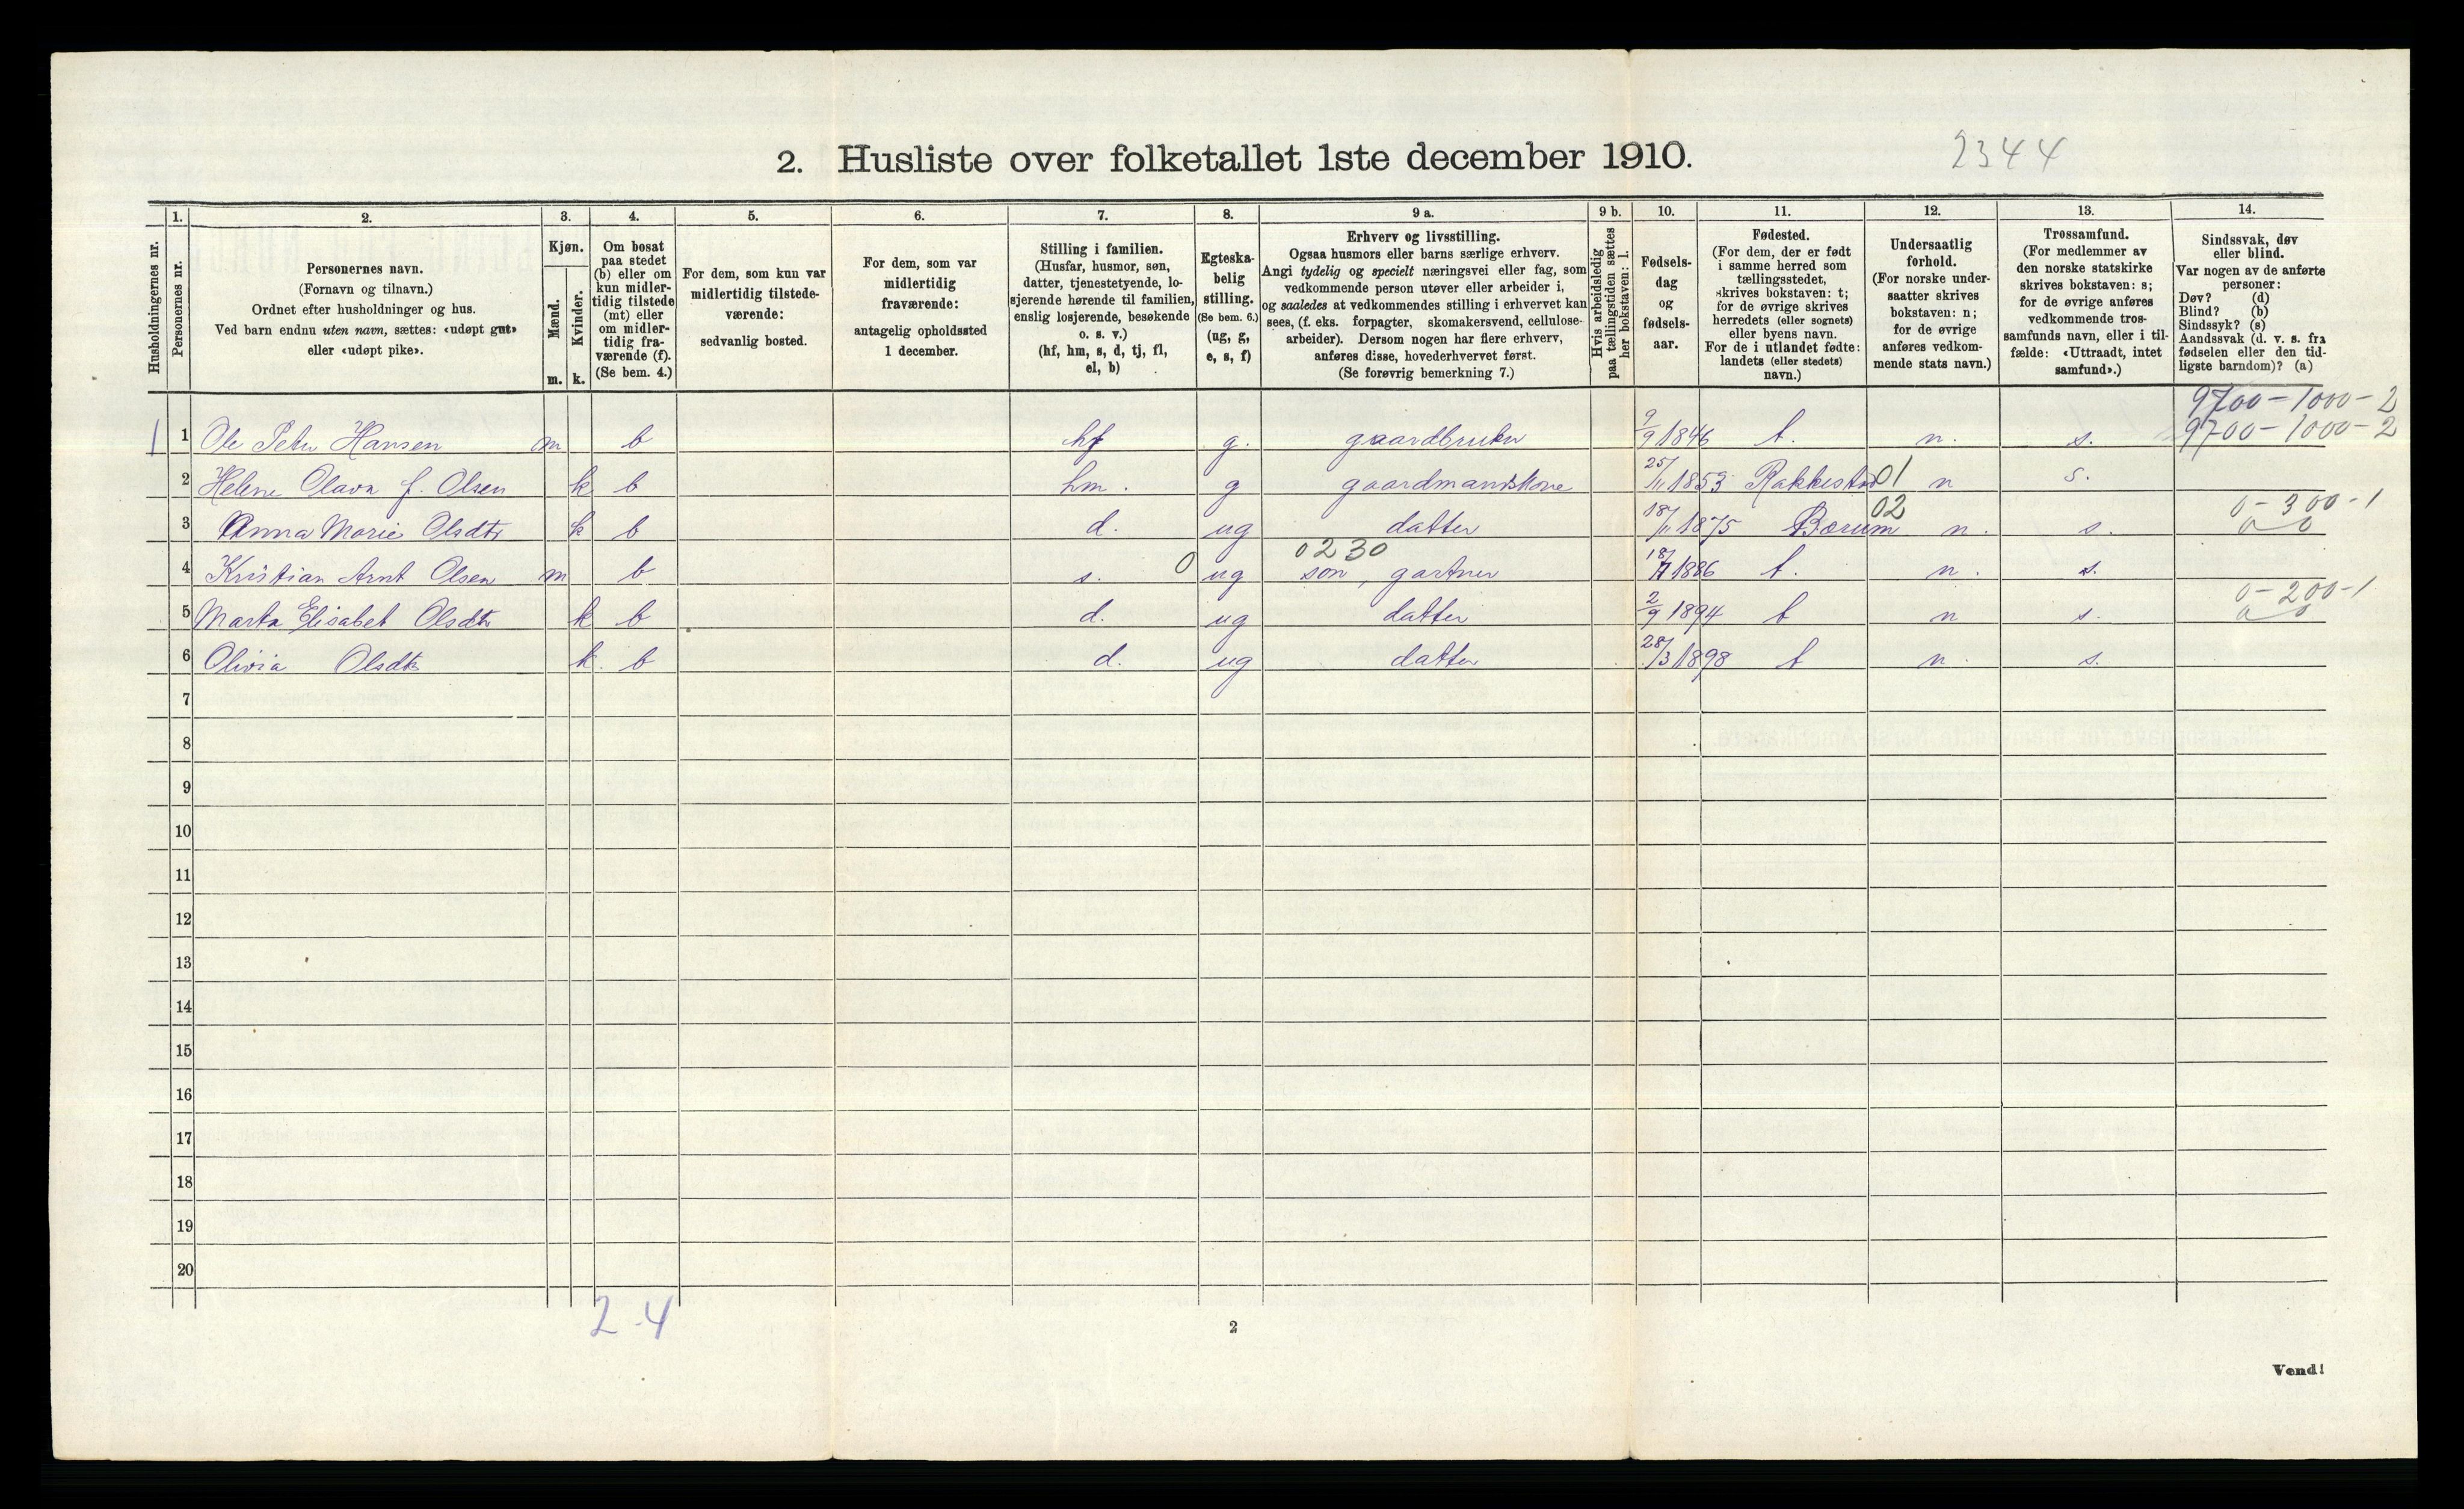 2. Husliste over folketallet 1ste december 1910. 2344
Husholdningernes nr.
1.
Personernes nr.
2.
Personernes navn.
(Fornavn og tilnavn.)
Ordnet efter husholdninger og hus.
Ved barn endnu uten navn, sættes: «udøpt gut»
eller «udøpt pike».
3.
Kjøn.
Mænd.
m.
Kvinder.
k.
4.
Om bosat
paa stedet
(b) eller om
kun midler-
tidig tilstede
(mt) eller
om midler-
tidig fra-
værende (f).
(Se bem. 4.)
5.
For dem, som kun var
midlertidig tilstede-
værende:
sedvanlig bosted.
6.
For dem, som var
midlertidig
fraværende:
antagelig opholdssted
1 december.
7.
Stilling i familien.
(Husfar, husmor, søn,
datter, tjenestetyende, lo-
sjerende hørende til familien,
enslig losjerende, besøkende
o. s. v.)
(hf, hm, s, d, tj, fl,
el, b)
8.
Egteska-
belig
stilling.
(Se bem. 6.)
(ug, g,
e, s, f)
9 a.
Erhverv og livsstilling.
Ogsaa husmors eller barns særlige erhverv.
Angi tydelig og specielt næringsvei eller fag, som
vedkommende person utøver eller arbeider i,
og saaledes at vedkommendes stilling i erhvervet kan
sees, (f. eks. forpagter, skomakersvend, cellulose-
arbeider). Dersom nogen har flere erhverv,
anføres disse, hovederhvervet først.
(Se forøvrig bemerkning 7.)
9 b.
Hvis arbeidsledig
paa tællingstiden sættes
her bokstaven: l.
10.
Fødsels-
dag
og
fødsels-
aar.
11.
Fødested.
(For dem, der er født
i samme herred som
tællingsstedet,
skrives bokstaven: t;
for de øvrige skrives
herredets (eller sognets)
eller byens navn.
For de i utlandet fødte:
landets (eller stedets)
navn.)
12.
Undersaatlig
forhold.
(For norske under-
saatter skrives
bokstaven: n;
for de øvrige
anføres vedkom-
mende stats navn.)
13.
Trossamfund.
(For medlemmer av
den norske statskirke
skrives bokstaven: s;
for de øvrige anføres
vedkommende tros-
samfunds navn, eller i til-
fælde: «Uttraadt, intet
samfund».)
14.
Sindssvak, døv
eller blind.
Var nogen av de anførte
personer:
Døv? (d)
Blind? (b)
Sindssyk? (s)
Aandssvak (d. v. s. fra
fødselen eller den tid-
ligste barndom)? (a)
9700-1000-2
1 1 Ole Peter Hansen m b hf g. gaardbruker 9/9 1846 t. n. s. 9700-1000-2
2 Helene Olava f. Olsen k b hm. g gaardmandskone 25/11 1853 Rakkestad 01 n s.
3 Anna Marie Olsdtr k b d. ug datter 18/11 1875 Bærum 02 n. s. 0-300-1
4 Kristian Arnt Olsen m b s. 0 ug 0230 søn, gartner 18/7 1886 t. n. s.
5 Marta Elisabet Olsdtr k b d. ug datter 2/9 1894 t n s. 0-200-1
6 Olivia Olsdtr k. b d. ug datter 28/3 1898 t n. s.
7
8
9
10
11
12
13
14
15
16
17
18
19
20
2-4
2
Vend!